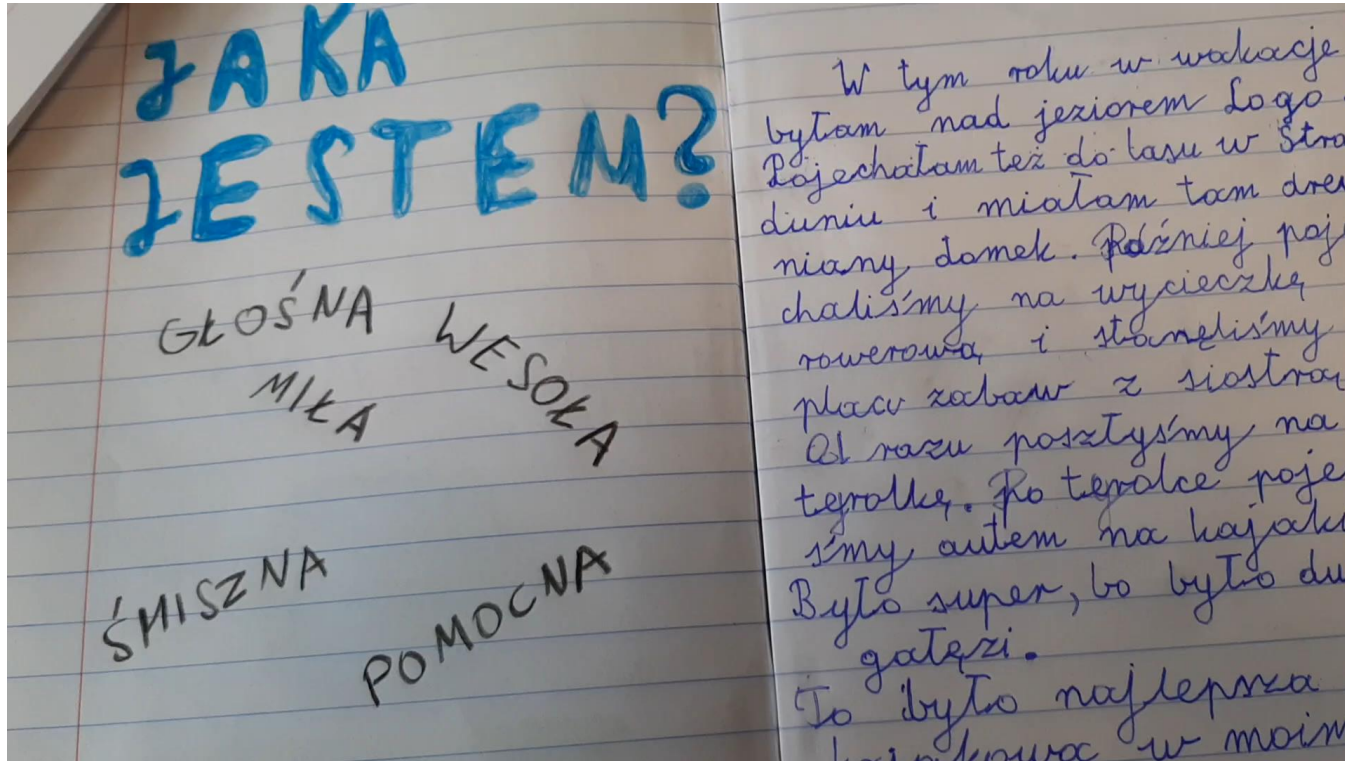 JAKA
JESTEM?
GŁOŚNA
WESOŁA
MIŁA
ŚMISZNA
POMOCNA
W tym roku w wakacje
byłam nad jeziorem Logo
Pojechałam też do lasu w Stra
duniu i miałam tam drew
niany domek. Później poje
chaliśmy na wycieczkę
rowerową i stanęliśmy
placu zabaw z siostrą
Od razu poszłyśmy na
tyrolkę. Po tyrolce poje
śmy autem na kajaki
Było super, bo było du
gałęzi.
To było najlepsza
w moim